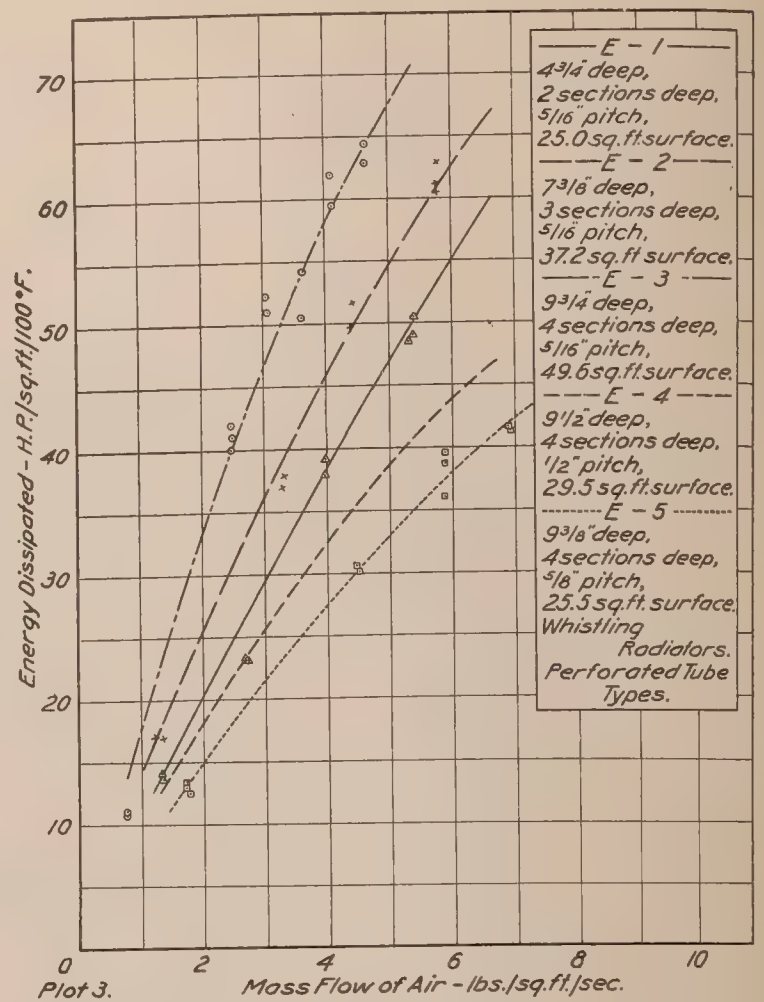 70
60
50
40
30
20
10
Energy Dissipated - H.P./sq.ft./100°F.
E - 1
4 3/4" deep,
2 sections deep,
5/16" pitch,
25.0 sq.ft. surface.
E - 2
7 3/8" deep,
3 sections deep,
5/16" pitch,
37.2 sq.ft surface.
E - 3
9 3/4" deep,
4 sections deep,
5/16" pitch,
49.6 sq.ft. surface.
E - 4
9 1/2" deep,
4 sections deep,
1/2" pitch,
29.5 sq.ft. surface.
E - 5
9 3/8" deep,
4 sections deep,
5/8" pitch,
25.5 sq.ft. surface.
Whistling
Radiators.
Perforated Tube
Types.
0 2 4 6 8 10
Plot 3.
Mass Flow of Air - lbs./sq.ft./sec.